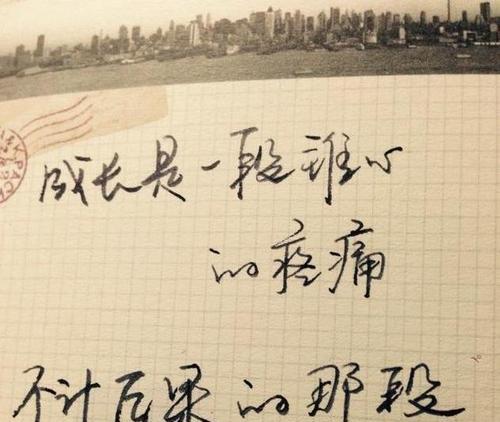 成长是一段锥心
的疼痛
不计后果的那段